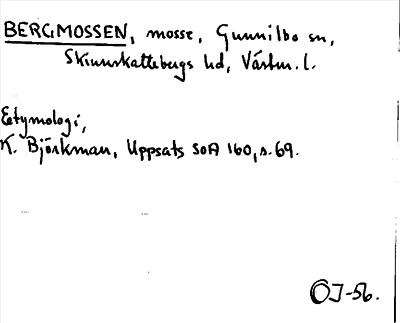 BERGMOSSEN, mosse, Gunnilbo sn,
Skinnskattebergs hd, Västm. l.
Etymologi,
K. Björkman, Uppsats SOA 160, s. 69.
OJ-56.